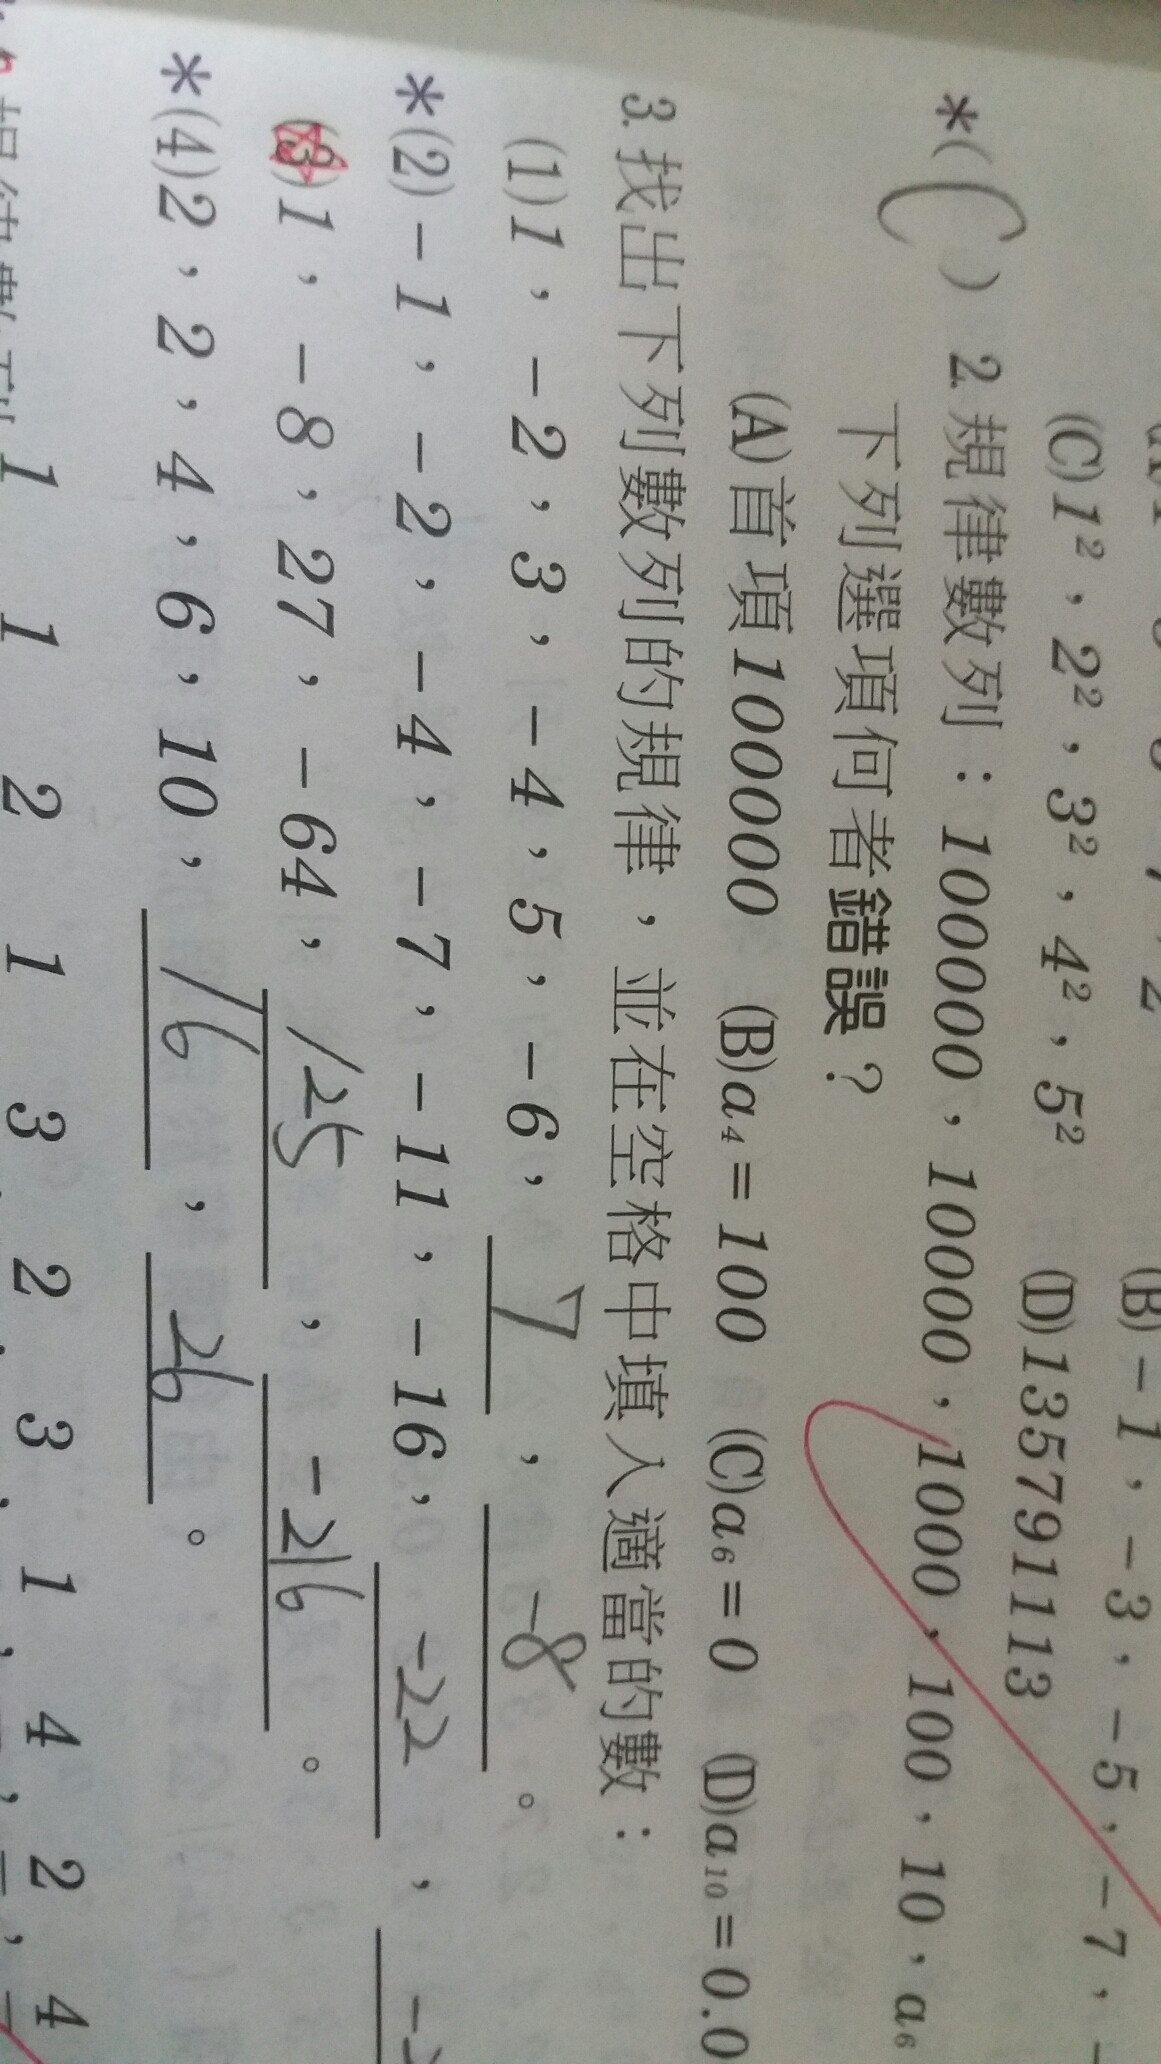 (B)-1，-3，-5，-7，
(C)1²，2²，3²，4²，5² (D)1357911 13
*(C) 2. 規律數列：100000，10000，1000，100，10，a₆
下列選項何者錯誤？
(A)首項100000 (B)a₄=100 (C)a₆=0 (D)a₁₀=0.0
3. 找出下列數列的規律，並在空格中填入適當的數：
(1)1，-2，3，-4，5，-6，7，-8。
*(2)-1，-2，-4，-7，-11，-16，-22，
(3)1，-8，27，-64，125，-216。
*(4)2，2，4，6，10，16，26。
1 1 2 1 3，2，3，1，4，2，4